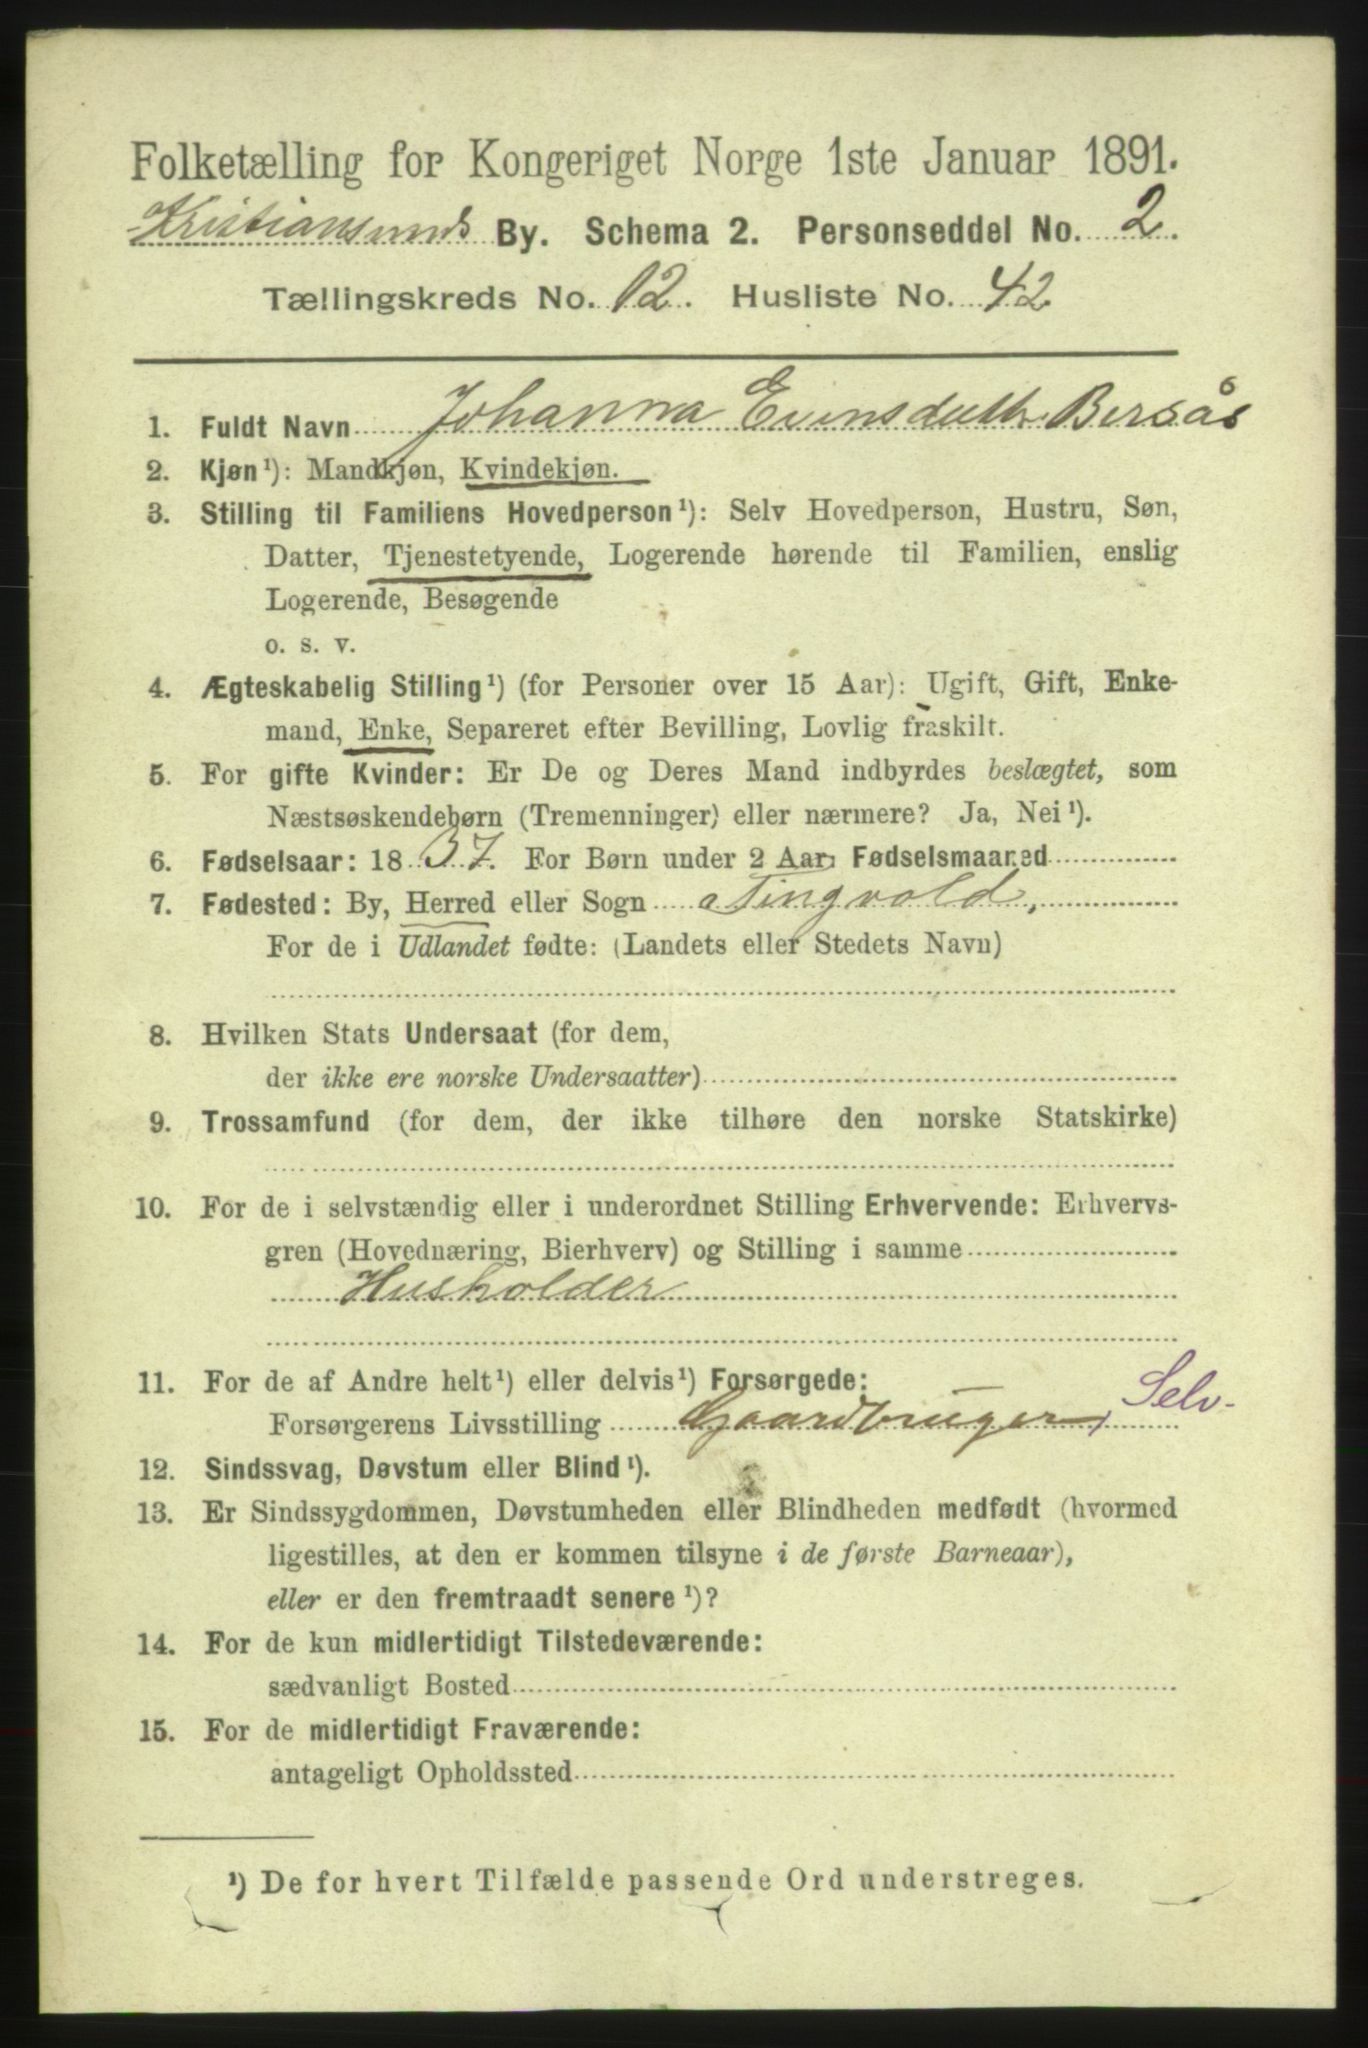 Folketælling for Kongeriget Norge 1ste Januar 1891.
Kristiansunds By. Schema 2. Personseddel No. 2.
Tællingskreds No. 12. Husliste No. 42
1. Fuldt Navn Johanna Evensdatth Bersås
2. Kjøn ¹): Mandkjøn, Kvindekjøn.
3. Stilling til Familiens Hovedperson ¹): Selv Hovedperson, Hustru, Søn,
Datter, Tjenestetyende, Logerende hørende til Familien, enslig
Logerende, Besøgende
o. s. v.
4. Ægteskabelig Stilling ¹) (for Personer over 15 Aar): Ugift, Gift, Enke-
mand, Enke, Separeret efter Bevilling, Lovlig fraskilt.
5. For gifte Kvinder: Er De og Deres Mand indbyrdes beslægtet, som
Næstsøskendebørn (Tremenninger) eller nærmere? Ja, Nei ¹).
6. Fødselsaar: 1837. For Børn under 2 Aar: Fødselsmaaned
7. Fødested: By, Herred eller Sogn Tingvold,
For de i Udlandet fødte: (Landets eller Stedets Navn)
8. Hvilken Stats Undersaat (for dem,
der ikke ere norske Undersaatter)
9. Trossamfund (for dem, der ikke tilhøre den norske Statskirke)
10. For de i selvstændig eller i underordnet Stilling Erhvervende: Erhvervs-
gren (Hovednæring, Bierhverv) og Stilling i samme
Husholder
11. For de af Andre helt ¹) eller delvis ¹) Forsørgede:
Forsørgerens Livsstilling Gaardbruger, Selv-
12. Sindssvag, Døvstum eller Blind ¹).
13. Er Sindssygdommen, Døvstumheden eller Blindheden medfødt (hvormed
ligestilles, at den er kommen tilsyne i de første Barneaar),
eller er den fremtraadt senere ¹)?
14. For de kun midlertidigt Tilstedeværende:
sædvanligt Bosted
15. For de midlertidigt Fraværende:
antageligt Opholdssted
¹) De for hvert Tilfælde passende Ord understreges.